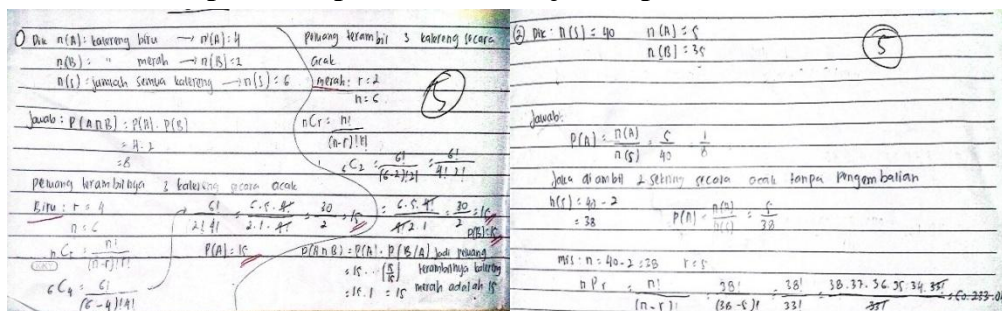 ① Dik n(A) : kalereng biru → n(A) : 4
n(B) : " merah → n(B) = 2
n(S) : jumlah semua kalereng → n(S) : 6
Jawab : P(A∩B) = P(A) . P(B)
= 4 . 2
= 8
peluang terambilnya 3 kalereng secara acak
Biru : r = 4
n = 6
nCr = n! / (n-r)! r!
6C4 = 6! / (6-4)! 4!
6! / 2! 4! = 6.5.4! / 2.1.4! = 30 / 2 = 15
P(A) = 15
peluang terambil 3 kalereng secara
acak
merah : r = 2
n = 6
5
nCr = n! / (n-r)! r!
6C2 = 6! / (6-2)! 2! = 6! / 4! 2!
= 6.5.4! / 4! 2.1 = 30 / 2 = 15
P(B) = 15
P(A∩B) = P(A) . P(B/A) Jadi peluang
terambilnya kalereng
= 15 . 1 = 15 merah adalah 15
② Dik : n(S) = 40 n(A) = 5
n(B) = 35
5
Jawab :
P(A) = n(A) / n(S) = 5 / 40 = 1 / 8
Jika diambil 2 sekring secara acak tanpa pengembalian
n(S) = 40 - 2
= 38 P(A) = n(A) / n(S) = 5 / 38
mis : n = 40 - 2 = 38 r = 5
nPr = n! / (n-r)! = 38! / (38-5)! = 38! / 33! = 38.37.36.35.34.33! / 33!